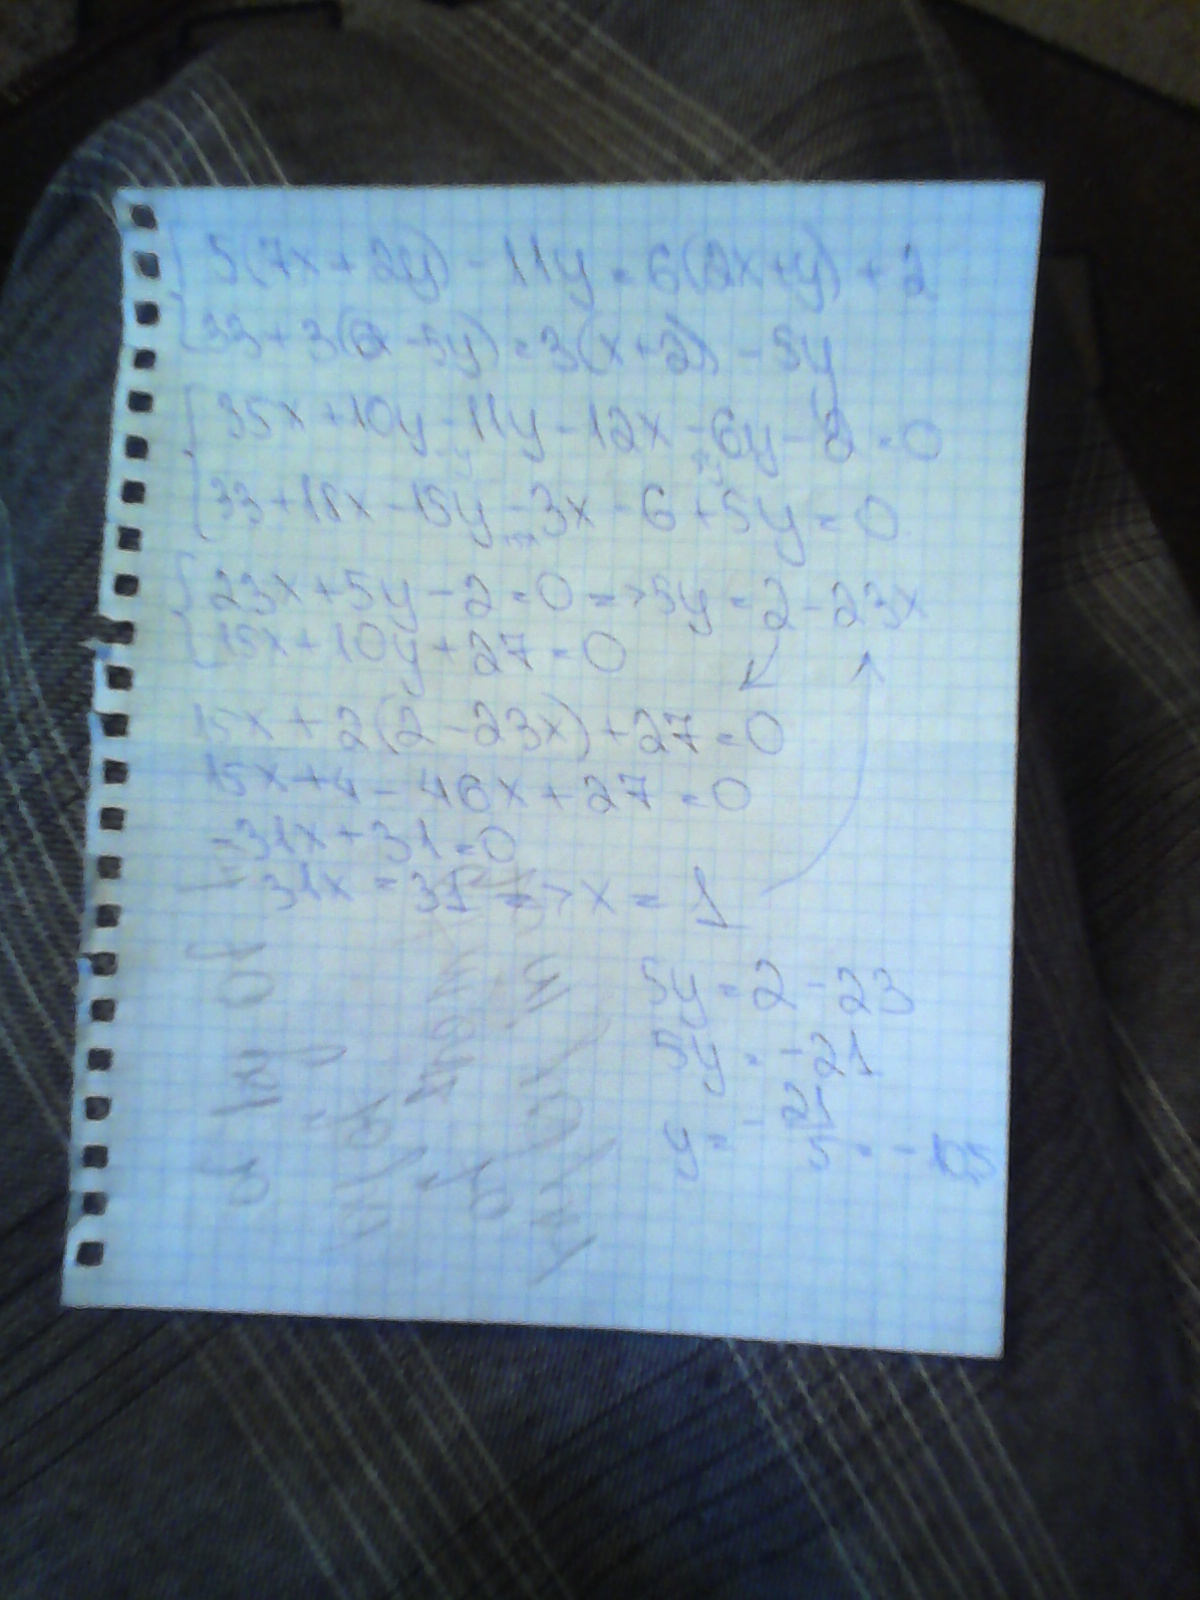 5(7x+2y) - 11y = 6(2x+y) + 2
33 + 3(x - 5y) = 3(x+2) - 5y
35x + 10y - 11y - 12x - 6y - 2 = 0
33 + 18x - 15y - 3x - 6 + 5y = 0
23x + 5y - 2 = 0 => 5y = 2 - 23x
15x + 10y + 27 = 0
15x + 2(2 - 23x) + 27 = 0
15x + 4 - 46x + 27 = 0
-31x + 31 = 0
31x = 31 => x = 1
5y = 2 - 23
5y = -21
y = -21/5 =